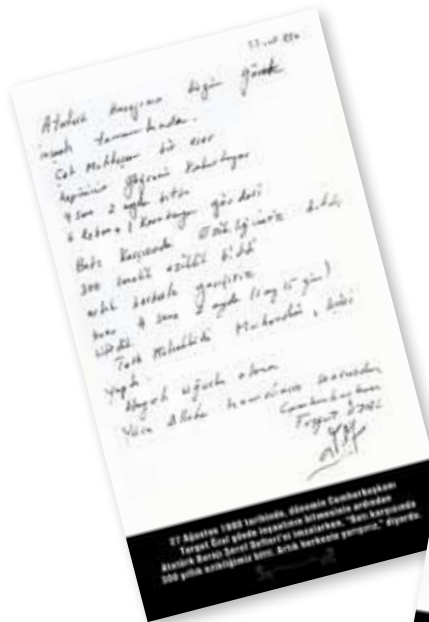 Atatürk Barajının bugün gövde
inşaatı tamamlandı.
Çok Muhteşem bir eser
hepimizin göğsünü kabartıyor
4 sene 2 ayda bitti
Batı karşısında ezikliğimiz bitti,
300 senelik eziklik bitti
artık herkesle yarışırız
4 sene 2 ayda (1 ay 15 gün)
Türk Müteahhidi Mühendisi, İşçisi
Yaptı.
Hayırlı uğurlu olsun
Cumhurbaşkanı
Turgut Özal
27 Ağustos 1990 tarihinde, dönemin Cumhurbaşkanı
Turgut Özal gövde inşaatının bitmesinin ardından
Atatürk Barajı Şeref Defteri'ni imzalarken, "Batı karşısında
300 yıllık ezikliğimiz bitti. Artık herkesle yarışırız," diyordu.